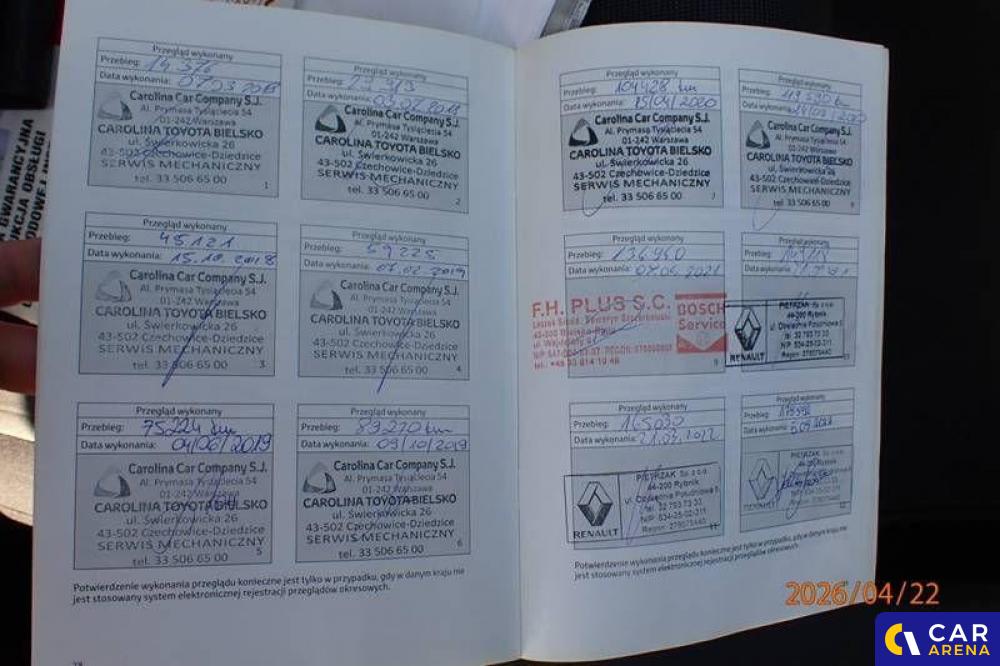 Przegląd wykonany
Przebieg: 14 376
Data wykonania: 07.03 2018
Carolina Car Company S.J.
Al. Prymasa Tysiąclecia 54
01-242 Warszawa
CAROLINA TOYOTA BIELSKO
ul. Świerkowicka 26
43-502 Czechowice-Dziedzice
SERWIS MECHANICZNY
tel. 33 506 65 00
1
Przegląd wykonany
Przebieg:
Data wykonania:
Carolina Car Company S.J.
Al. Prymasa Tysiąclecia 54
01-242 Warszawa
CAROLINA TOYOTA BIELSKO
ul. Świerkowicka 26
43-502 Czechowice-Dziedzice
SERWIS MECHANICZNY
tel. 33 506 65 00
2
Przegląd wykonany
Przebieg: 45121
Data wykonania: 15.10.2018
Carolina Car Company S.J.
Al. Prymasa Tysiąclecia 54
01-242 Warszawa
CAROLINA TOYOTA BIELSKO
ul. Świerkowicka 26
43-502 Czechowice-Dziedzice
SERWIS MECHANICZNY
tel. 33 506 65 00
3
Przegląd wykonany
Przebieg: 59225
Data wykonania: 07.02.2019
Carolina Car Company S.J.
Al. Prymasa Tysiąclecia 54
01-242 Warszawa
CAROLINA TOYOTA BIELSKO
ul. Świerkowicka 26
43-502 Czechowice-Dziedzice
SERWIS MECHANICZNY
tel. 33 506 65 00
4
Przegląd wykonany
Przebieg: 75224 km
Data wykonania: 04/06/2019
Carolina Car Company S.J.
Al. Prymasa Tysiąclecia 54
01-242 Warszawa
CAROLINA TOYOTA BIELSKO
ul. Świerkowicka 26
43-502 Czechowice-Dziedzice
SERWIS MECHANICZNY
tel. 33 506 65 00
5
Przegląd wykonany
Przebieg: 89270 km
Data wykonania: 09/10/2019
Carolina Car Company S.J.
Al. Prymasa Tysiąclecia 54
01-242 Warszawa
CAROLINA TOYOTA BIELSKO
ul. Świerkowicka 26
43-502 Czechowice-Dziedzice
SERWIS MECHANICZNY
tel. 33 506 65 00
6
Potwierdzenie wykonania przeglądu konieczne jest tylko w przypadku, gdy w danym kraju nie
jest stosowany system elektronicznej rejestracji przeglądów okresowych.
Przegląd wykonany
Przebieg: 104428 km
Data wykonania: 15/04/2020
Carolina Car Company S.J.
Al. Prymasa Tysiąclecia 54
01-242 Warszawa
CAROLINA TOYOTA BIELSKO
ul. Świerkowicka 26
43-502 Czechowice-Dziedzice
SERWIS MECHANICZNY
tel. 33 506 65 00
7
Przegląd wykonany
Przebieg:
Data wykonania:
Carolina Car Company S.J.
Al. Prymasa Tysiąclecia 54
01-242 Warszawa
CAROLINA TOYOTA BIELSKO
ul. Świerkowicka 26
43-502 Czechowice-Dziedzice
SERWIS MECHANICZNY
tel. 33 506 65 00
8
Przegląd wykonany
Przebieg: 136940
Data wykonania:
F.H. PLUS S.C.
BOSCH
Service
9
Przegląd wykonany
Przebieg:
Data wykonania:
PIETRZAK Sp. z o.o.
44-200 Rybnik
RENAULT
Przegląd wykonany
Przebieg: 165030
Data wykonania:
PIETRZAK Sp. z o.o.
44-200 Rybnik
RENAULT
11
Przegląd wykonany
Przebieg:
Data wykonania:
PIETRZAK
44-200 Rybnik
12
Potwierdzenie wykonania przeglądu konieczne jest tylko w przypadku, gdy w danym kraju nie
jest stosowany system elektronicznej rejestracji przeglądów okresowych.
2026/04/22
CAR
ARENA